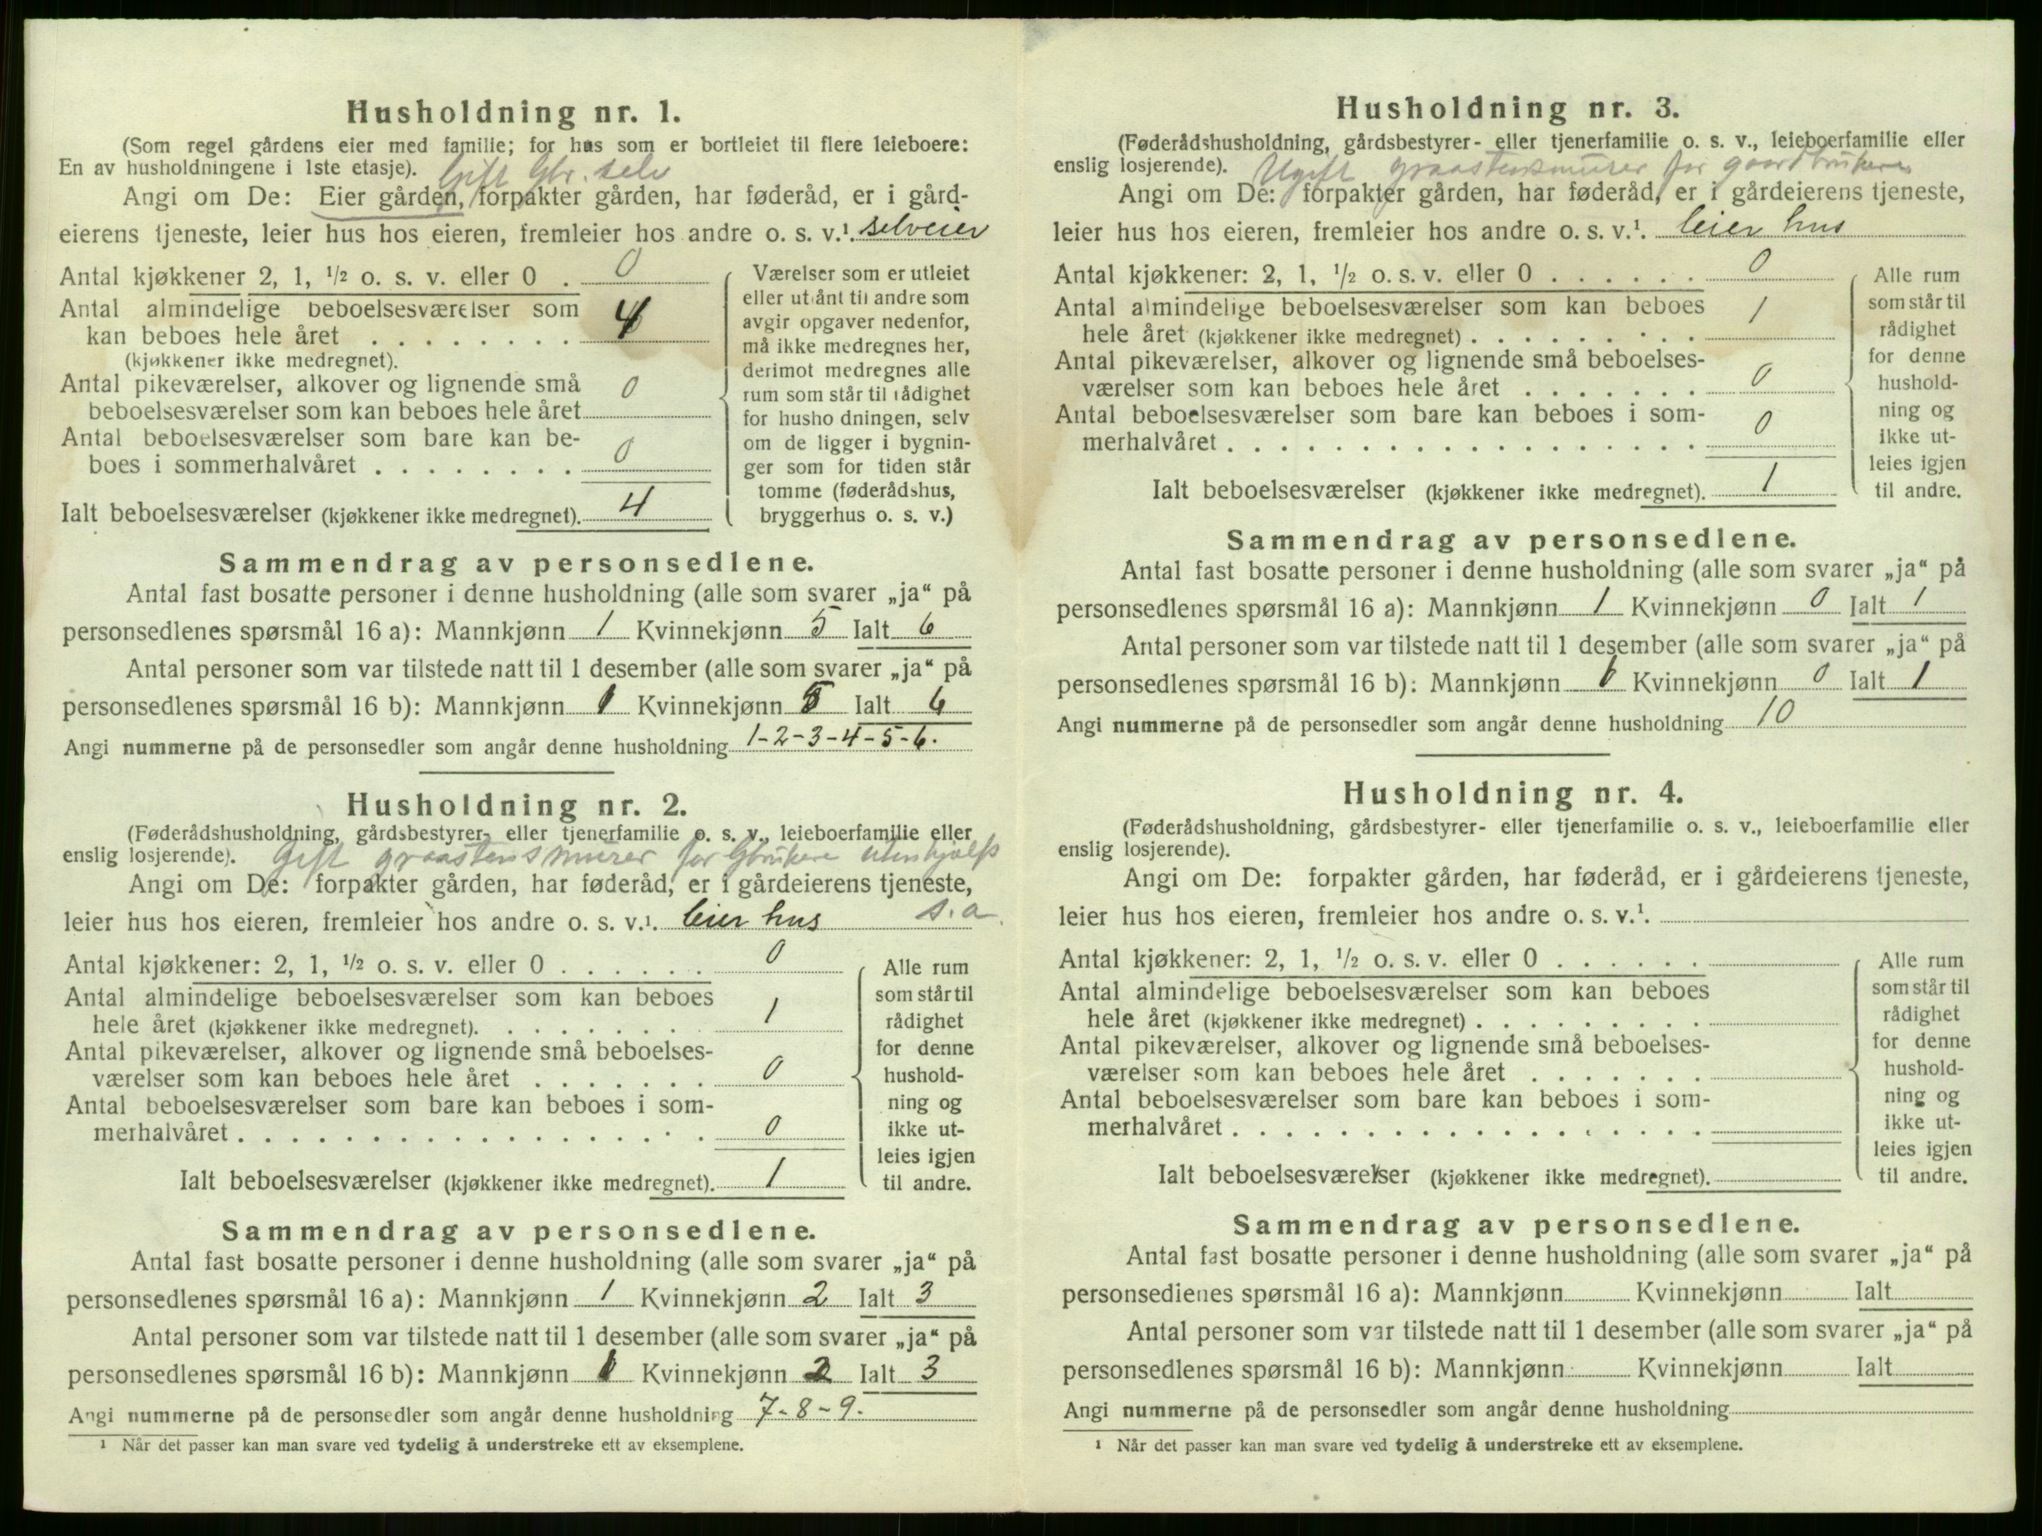 Husholdning nr. 1.
(Som regel gårdens eier med familie; for hus som er bortleiet til flere leieboere:
En av husholdningene i 1ste etasje). Gift Gbr. selv
Angi om De: Eier gården, forpakter gården, har føderåd, er i gård-
eierens tjeneste, leier hus hos eieren, fremleier hos andre o. s. v.¹. selveier
Antal kjøkkener 2, 1, ½ o. s. v. eller 0 . 0
Antal almindelige beboelsesværelser som
kan beboes hele året . . . . . . . . 4
(kjøkkener ikke medregnet).
Antal pikeværelser, alkover og lignende små
beboelsesværelser som kan beboes hele året 0
Antal beboelsesværelser som bare kan be-
boes i sommerhalvåret . . . . . . . . 0
Ialt beboelsesværelser (kjøkkener ikke medregnet). 4
Værelser som er utleiet
eller utlånt til andre som
avgir opgaver nedenfor,
må ikke medregnes her,
derimot medregnes alle
rum som står til rådighet
for husholdningen, selv
om de ligger i bygnin-
ger som for tiden står
tomme (føderådshus,
bryggerhus o. s. v.)
Sammendrag av personsedlene.
Antal fast bosatte personer i denne husholdning (alle som svarer „ja“ på
personsedlenes spørsmål 16 a): Mannkjønn 1 Kvinnekjønn 5 Ialt 6
Antal personer som var tilstede natt til 1 desember (alle som svarer „ja“ på
personsedlenes spørsmål 16 b): Mannkjønn 1 Kvinnekjønn 5 Ialt 6
Angi nummerne på de personsedler som angår denne husholdning 1-2-3-4-5-6.
Husholdning nr. 2.
(Føderådshusholdning, gårdsbestyrer- eller tjenerfamilie o. s. v., leieboerfamilie eller
enslig losjerende). Gift graastensmurer for Gbrukere utenhjælp
Angi om De: forpakter gården, har føderåd, er i gårdeierens tjeneste,
leier hus hos eieren, fremleier hos andre o. s. v.¹. leier hus s.a.
Antal kjøkkener: 2, 1, ½ o. s. v. eller 0 . . . . . . 0
Antal almindelige beboelsesværelser som kan beboes
hele året (kjøkkener ikke medregnet). . . . . . . . . 1
Antal pikeværelser, alkover og lignende små beboelses-
værelser som kan beboes hele året . . . . . . . 0
Antal beboelsesværelser som bare kan beboes i som-
merhalvåret . . . . . . . . . . . . . . . . . . 0
Ialt beboelsesværelser (kjøkkener ikke medregnet). 1
Alle rum
som står til
rådighet
for denne
hushold-
ning og
ikke ut-
leies igjen
til andre.
Sammendrag av personsedlene.
Antal fast bosatte personer i denne husholdning (alle som svarer „ja“ på
personsedlenes spørsmål 16 a): Mannkjønn 1 Kvinnekjønn 2 Ialt 3
Antal personer som var tilstede natt til 1 desember (alle som svarer „ja“ på
personsedlenes spørsmål 16 b): Mannkjønn 1 Kvinnekjønn 2 Ialt 3
Angi nummerne på de personsedler som angår denne husholdning 7-8-9.
¹ Når det passer kan man svare ved tydelig å understreke ett av eksemplene.
Husholdning nr. 3.
(Føderådshusholdning, gårdsbestyrer- eller tjenerfamilie o. s. v., leieboerfamilie eller
enslig losjerende). Ugift graastensmurer for gaardbrukere
Angi om De: forpakter gården, har føderåd, er i gårdeierens tjeneste,
leier hus hos eieren, fremleier hos andre o. s. v.¹. leier hus
Antal kjøkkener: 2, 1, ½ o. s. v. eller 0 . . . . . . 0
Antal almindelige beboelsesværelser som kan beboes
hele året (kjøkkener ikke medregnet) . . . . . . . . . 1
Antal pikeværelser, alkover og lignende små beboelses-
værelser som kan beboes hele året . . . . . . . 0
Antal beboelsesværelser som bare kan beboes i som-
merhalvåret . . . . . . . . . . . . . . . . . . 0
Ialt beboelsesværelser (kjøkkener ikke medregnet). 1
Alle rum
som står til
rådighet
for denne
hushold-
ning og
ikke ut-
leies igjen
til andre.
Sammendrag av personsedlene.
Antal fast bosatte personer i denne husholdning (alle som svarer „ja“ på
personsedlenes spørsmål 16 a): Mannkjønn 1 Kvinnekjønn 0 Ialt 1
Antal personer som var tilstede natt til 1 desember (alle som svarer „ja“ på
personsedlenes spørsmål 16 b): Mannkjønn 1 Kvinnekjønn 0 Ialt 1
Angi nummerne på de personsedler som angår denne husholdning 10
Husholdning nr. 4.
(Føderådshusholdning, gårdsbestyrer- eller tjenerfamilie o. s. v., leieboerfamilie eller
enslig losjerende).
Angi om De: forpakter gården, har føderåd, er i gårdeierens tjeneste,
leier hus hos eieren, fremleier hos andre o. s. v.¹.
Antal kjøkkener: 2, 1, ½ o. s. v. eller 0 . . . . . .
Antal almindelige beboelsesværelser som kan beboes
hele året (kjøkkener ikke medregnet) . . . . . . . . .
Antal pikeværelser, alkover og lignende små beboelses-
værelser som kan beboes hele året . . . . . . .
Antal beboelsesværelser som bare kan beboes i som-
merhalvåret . . . . . . . . . . . . . . . . . .
Ialt beboelsesværelser (kjøkkener ikke medregnet).
Alle rum
som står til
rådighet
for denne
hushold-
ning og
ikke ut-
leies igjen
til andre.
Sammendrag av personsedlene.
Antal fast bosatte personer i denne husholdning (alle som svarer „ja“ på
personsedlenes spørsmål 16 a): Mannkjønn Kvinnekjønn Ialt
Antal personer som var tilstede natt til 1 desember (alle som svarer „ja“ på
personsedlenes spørsmål 16 b): Mannkjønn Kvinnekjønn Ialt
Angi nummerne på de personsedler som angår denne husholdning
¹ Når det passer kan man svare ved tydelig å understreke ett av eksemplene.